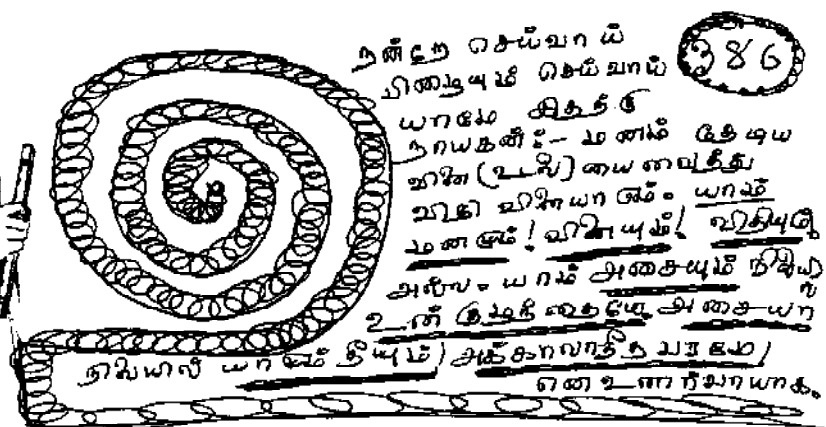 நன்றே செய்வாய்
பிழையும் செய்வாய்
386
யாமே இதற்கு
நாயகன் :- மனம் தேடிய
வினை (உடல்) யை வைத்து
விதி விளையாடும். யாம்
மனமும்! வினையும்! விதியும்
அல்ல. யாம் அசையும் நிலையி
ல்
உன் குழந்தையே அசையா
நிலையில் யாமும் நீயும்! அக்காலாதீத பரமே!
என உணர்வாயாக.